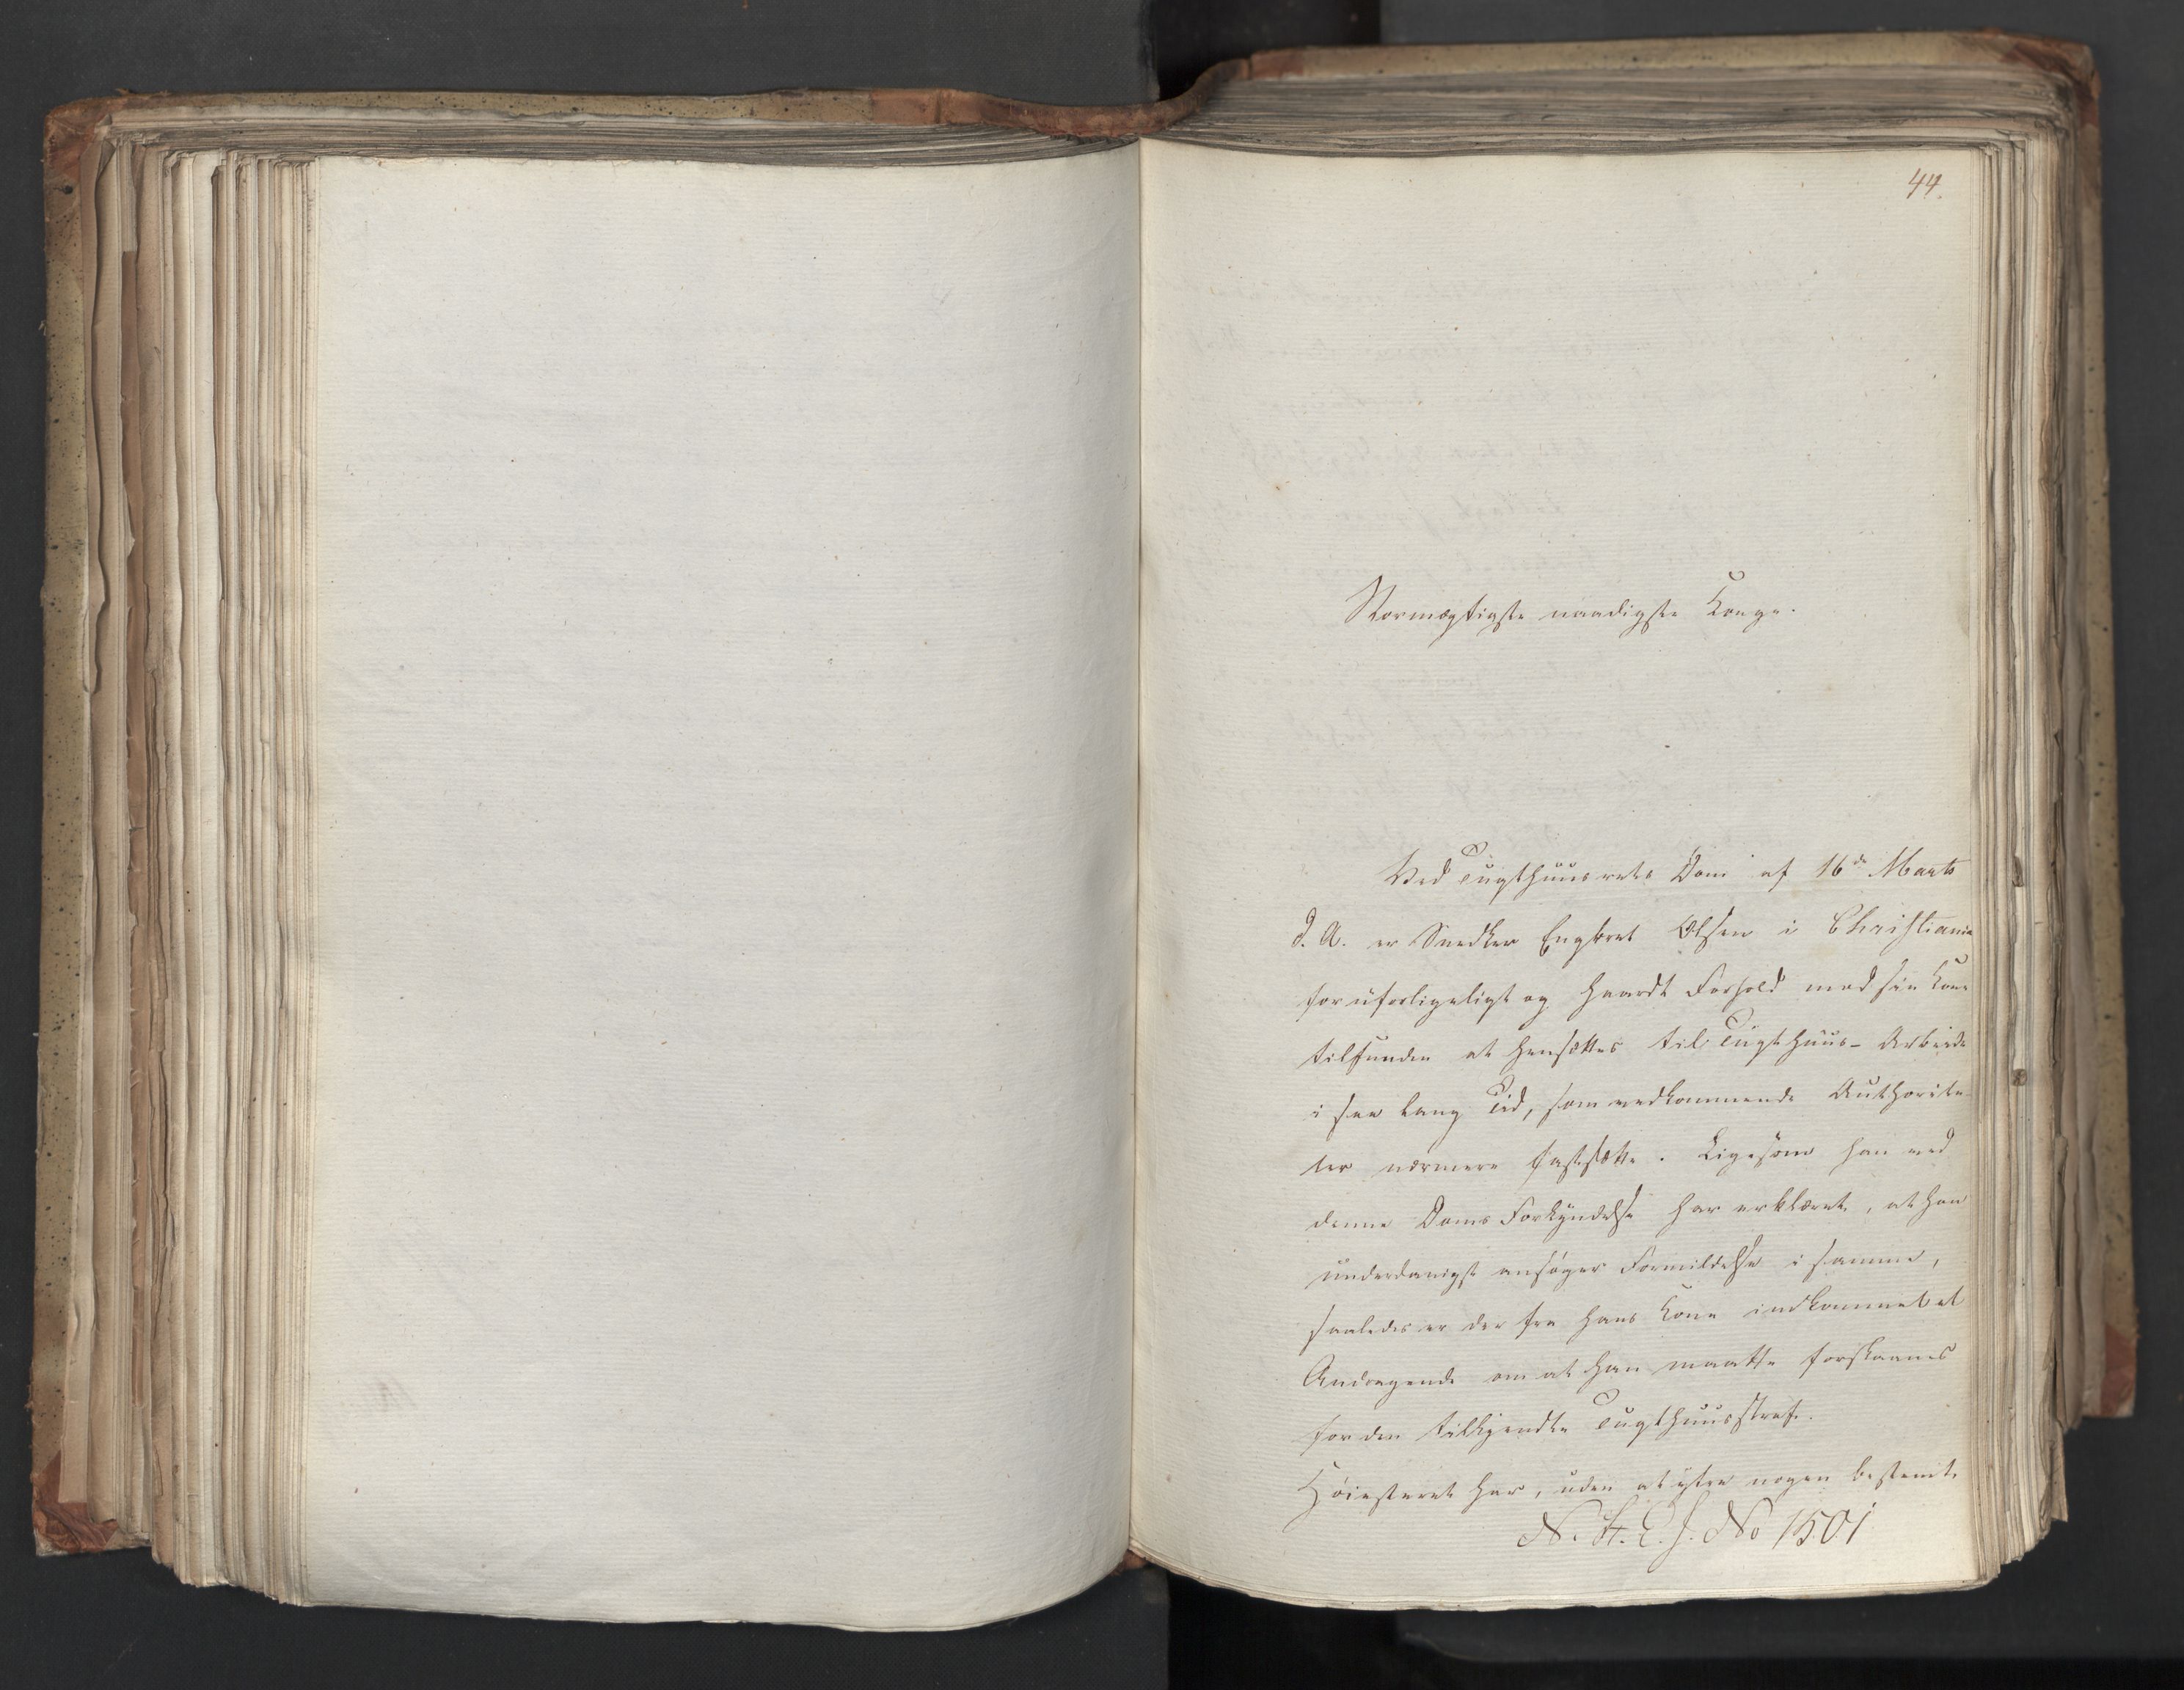 44.
Stormægtigste naadigste Konge.
Ved Tugthuusrets Dom af 16de Marts
d. A. er Snedker Engbret Olsen i Christiania
for uforligeligt og haardt Forhold mod sin Kone
tilfunden at hensættes til Tugthuus-Arbeide
i saa lang Tid, som vedkommende Authorite
ter nærmere fastsætte. Ligesom han ved
denne Doms Forkyndelse har erklæret, at han
underdanigst ansøger Formildelse i samme,
saaledes er der fra hans Kone indkommet et
Andragende om at han maatte forskaanes
for den tilkjendte Tugthuusstraf.
Høiesteret har, uden at yttre nogen bestemt
N. St. E. J. No 1501